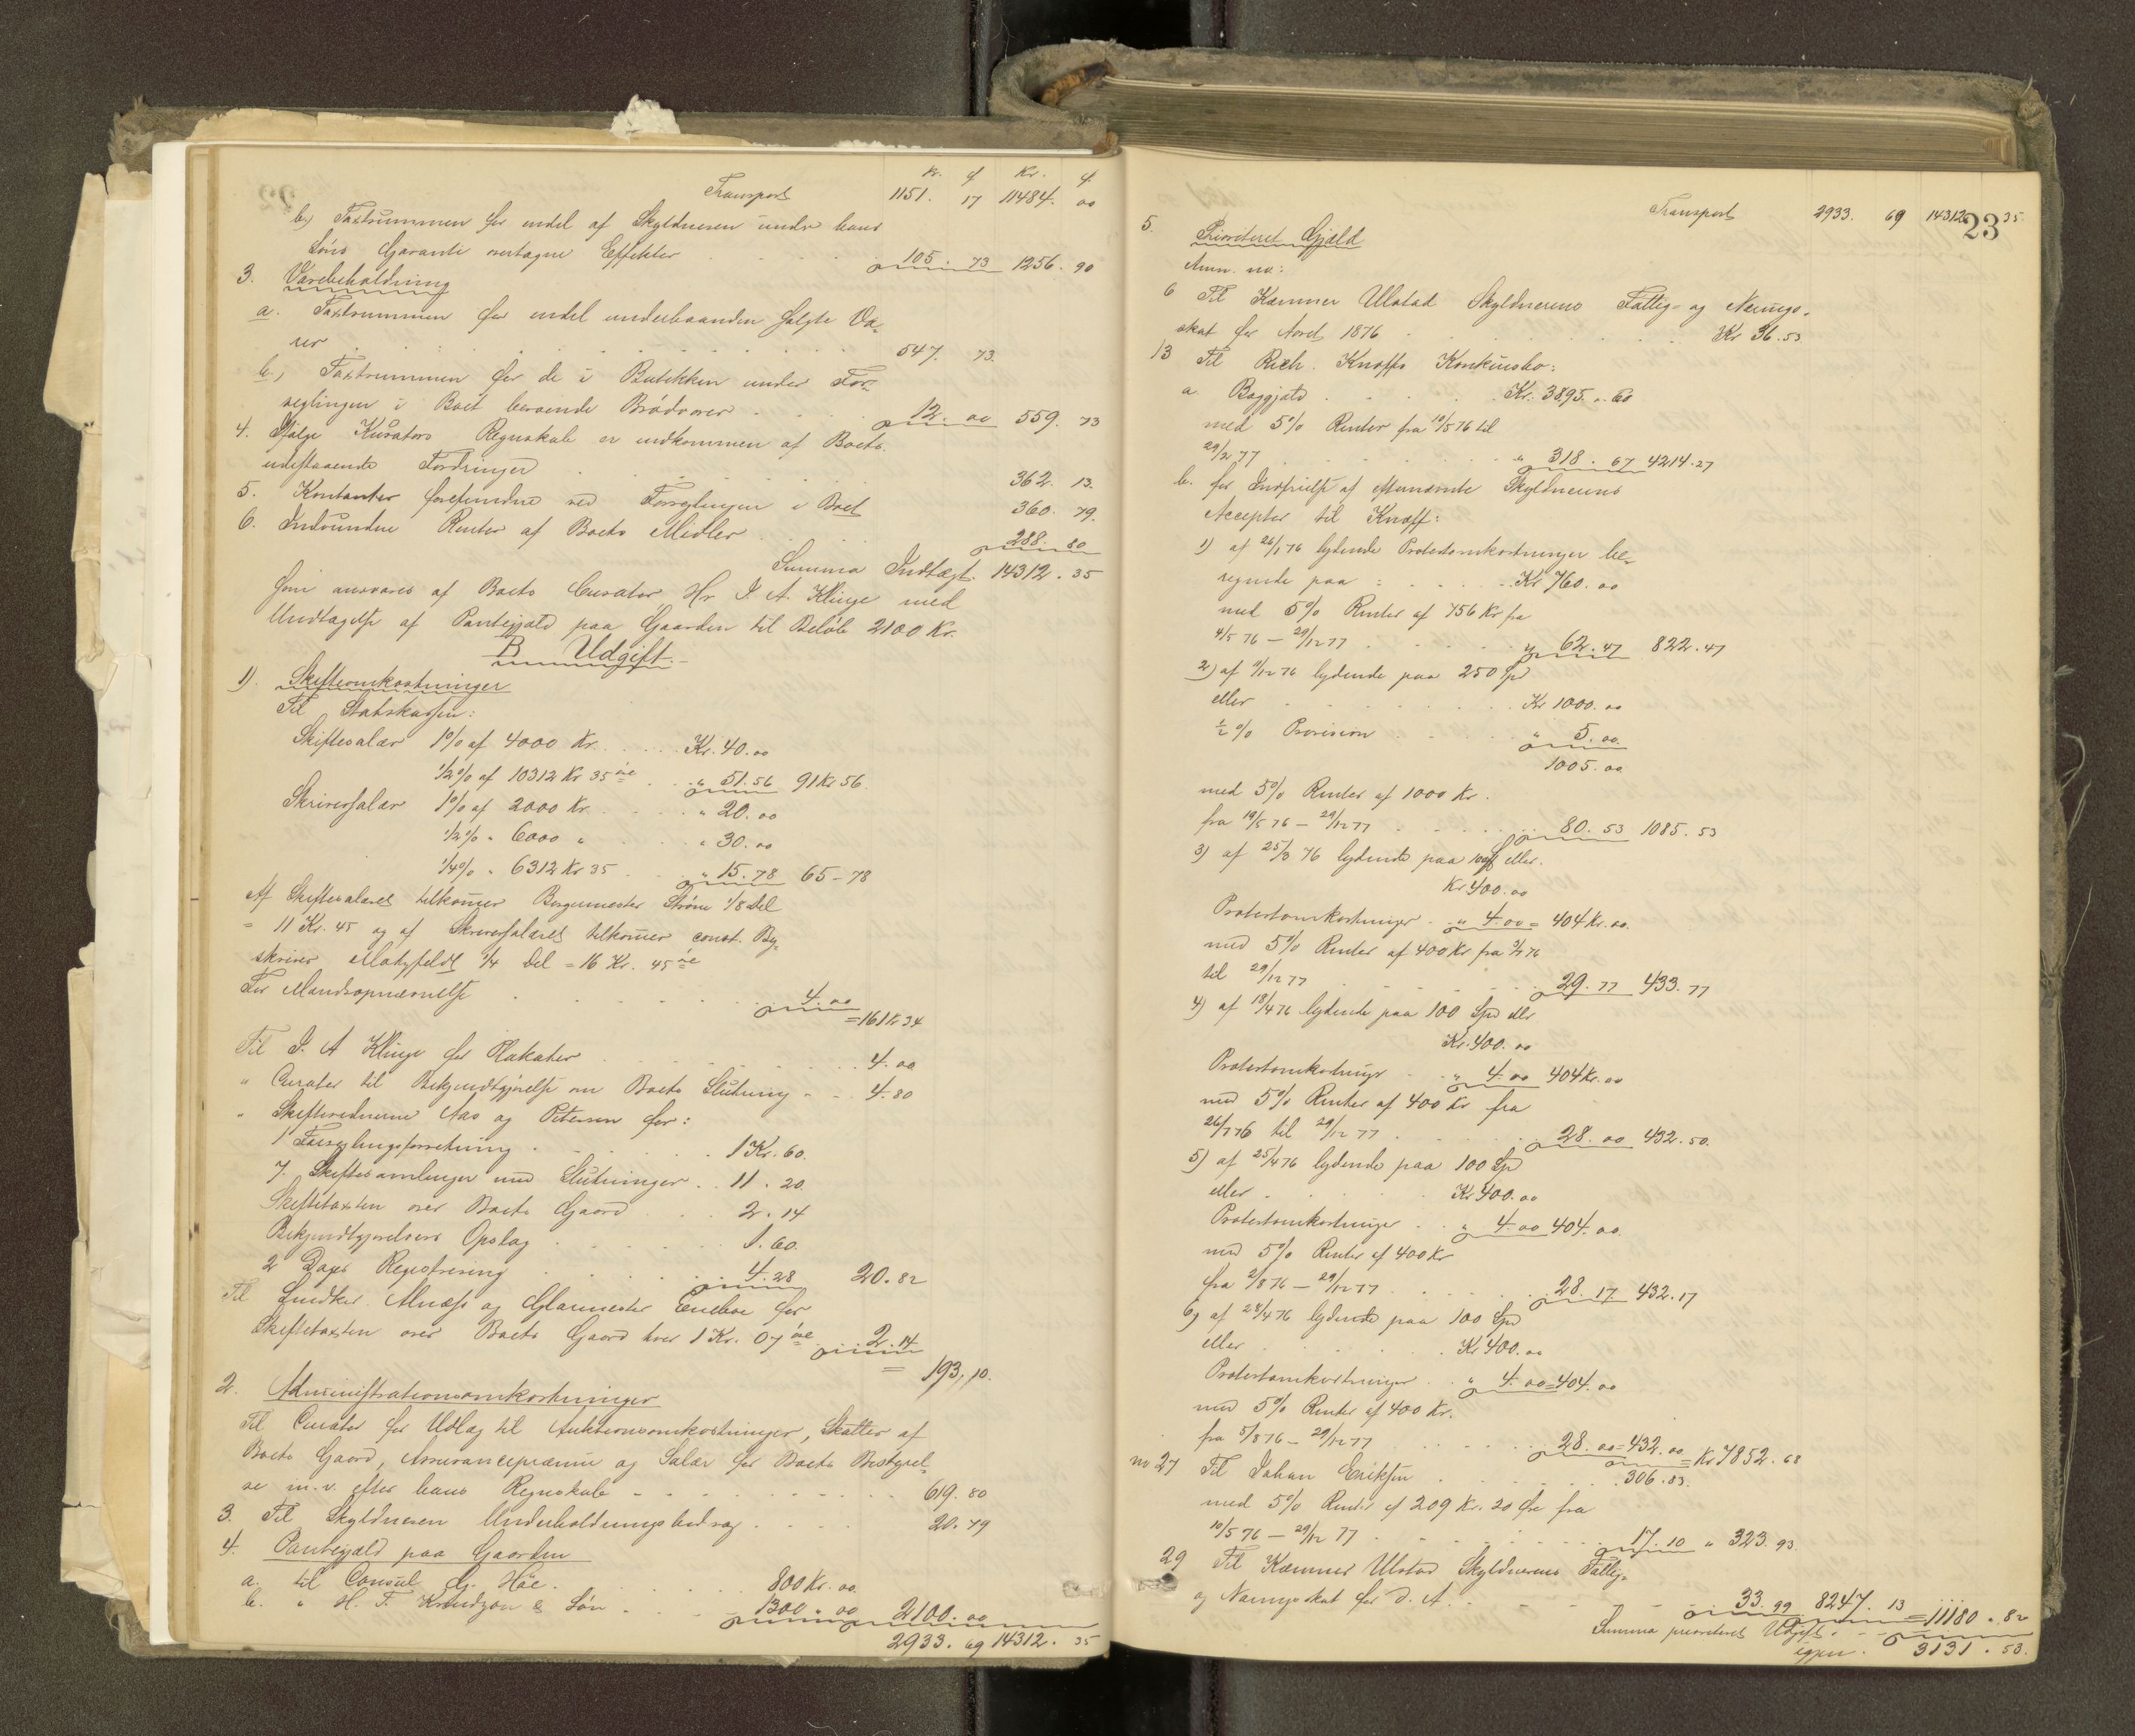 Kr. ₰ Kr. ₰
Transport 1151. 17 11484. 00
b.) Taxtsummen for endel af Skyldneren under hans
Søns Garanti overtagne Effekter 105. 73 1256. 90
3. Varebeholdning
a. Taxtsummen for endel underhaanden solgte Va-
rer 547. 73.
b.) Taxtsummen for de i Butikken under For-
seglingen i Boet beroende Brødvarer 12. 00 559. 73
4. Ifølge Kurators Regnskab er indkommen af Boets
udestaaende Fordringer 362. 13.
5. Kontanter forefundne ved Forseglingen i Boet 360. 79.
6. Indvundne Renter af Boets Midler 288. 80
Summa Indtægt. 14312. 35
som ansvares af Boets Curator Hr I. A. Klinge med
Undtagelse af Pantegjæld paa Gaarden til Beløb 2100 Kr.
B Udgift.
1). Skifteomkostninger
Til Statskassen:
Skiftesalær 1% af 4000 Kr. Kr. 40.00
1/2% af 10312 Kr 35 øre " 51.56 91 Kr 56.
Skriversalær 1% af 2000 Kr. " 20.00
1/2% " 6000 " " 30.00
1/4% " 6312 Kr 35 " 15.78 65-78
Af Skiftesalæret tilkommer Borgermester Strøm 1/8 Del
= 11 Kr. 45 og af Skriversalæret tilkommer const. By-
skriver Matzfeldt 1/4 Del = 16 Kr. 45 øre
For Mandsopnævnelse 4.00
=161 Kr 34
Til I. A Klinge for Plakater 4.00
" Curator til Bekjendtgjørelse om Boets Slutning 4.80
" Skiftevidnerne Aas og Petersen for:
1 Forseglingsforretning 1 Kr. 60.
7. Skiftesamlinger med Slutninger 11. 20.
Skiftetaxten over Boets Gaard 2. 14
Bekjendtgjørelsers Opslag 1. 60.
2 Dages Registrering 4.28 20.82
Til Snedker Alnæss og Glarmester Eneboe for
Skiftetaxten over Boets Gaard hver 1 Kr. 07 øre 2.14
= 193,10.
2. Administrationsomkostninger
Til Curator for Udlæg til Auktionsomkostninger, Skatter af
Boets Gaard, Assurancepræmie og Salær for Boets Bestyrel-
se m.v. efter hans Regnskab 619.80
3. Til Skyldneren Underholdningsbidrag 20.79
4. Pantegjæld paa Gaarden
a. til Consul Høe. 800 Kr. 00.
b. " H. T. Knudtzon & Søn 1300 " 00 2100.00
2933. 69 14312. 35
23
Transport 2933. 69 14312 35
5. Prioriteret Gjæld
Anm. no:
6 Til Kæmner Ulstad Skyldnerens Fattig- og Nærings-
skat for Aaret 1876 Kr 36.53
13 Til Rich. Knoffs Konkursbo:
a Boggjæld Kr. 3895. 60
med 5% Renter fra 10/5 76 til
29/12 77 " 318. 67 4214.27
b. for Indfrielse af efternævnte Skyldnerens
Accepter til Knoff:
1) af 26/1 76 lydende Protestomkostninger be-
regnede paa : Kr 760.00
med 5% Renter af 756 Kr fra
4/5 76 - 29/12 77 " 62.47 822.47
2) af 9/12 76 lydende paa 250 Spd
eller Kr 1000.00
1/2% Provision " 5.00.
1005.00
med 5% Renter af 1000 Kr.
fra 19/5 76 - 29/12 77 80. 53 1085. 53
3) af 25/3 76 lydende paa 100 eller.
Kr 400.00
Protestomkostninger " 4.00 = 404 Kr. 00.
med 5% Renter af 400 Kr fra 3/7 76
til 29/12 77 29. 77 433. 77
4) af 18/4 76 lydende paa 100 Spd eller
Kr. 400.00
Protestomkostninger " 4.00 404 Kr. 00
med 5% Renter af 400 Kr fra
26/7 76 til 29/12 77 28. 00 432.50.
5) af 25/4 76 lydende paa 100 Sp
eller Kr 400.00
Protestomkostninger " 4.00 404.00
med 5% Renter af 400 Kr
fra 2/8 76 - 29/12 77 28. 17. 432.17
6) af 28/4 76 lydende paa 100 Spd
eller Kr 400.00
Protestomkostninger " 4.00=404.00
med 5% Renter af 400 Kr.
fra 5/8 76 - 29/12 77 28. 00=432.00 = Kr 7852.68
no 27 Til Johan Eriksen 306.83.
med 5% Renter af 209 Kr. 20 Øre fra
10/5 76 - 29/12 77 17.10 " 323.93.
29 Til Kæmner Ulstad Skyldnerens Fattig-
og Næringsskat for d. A. 33.99 8247. 13 = 11180. 82
Summa prioriteret Udgift
igjen. 3131. 53.